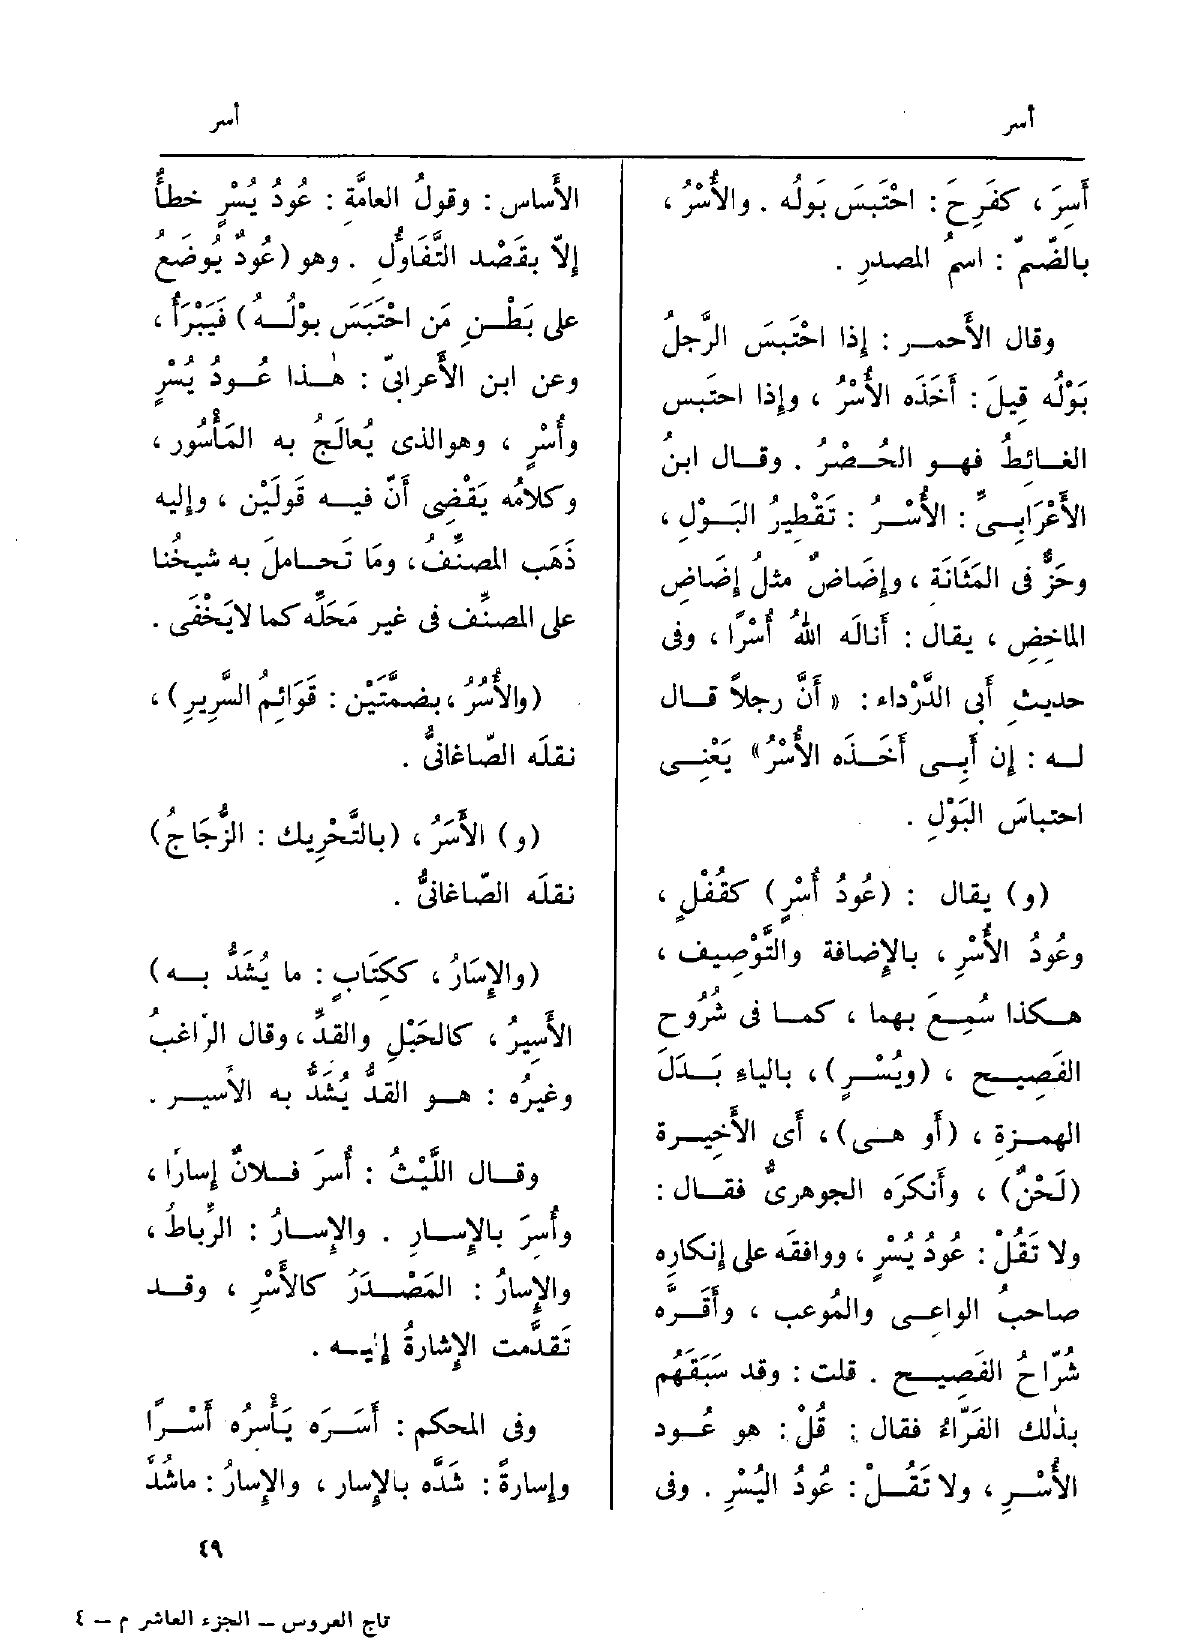 أسر
أسر
أَسِرَ ، كفَرِحَ : احْتَبَسَ بَولُه . والأُسْرُ ،
بالضّمّ : اسمُ المصدرِ .
وقال الأَحمـر : إِذا احْتَبَسَ الرَّجلُ
بَوْلُه قِيلَ : أَخَذَه الأُسْرُ ، وإِذا احتَبس
الغـائطُ فهـو الحُـصْرُ . وقـال ابنُ
الأَعْرَابـيِّ : الأُسْـرُ : تَقْطِيرُ البَـوْلِ ،
وحَزٌّ فى المَثَانَة ، وإِضَاضٌ مثلُ إِضَاضِ
الماخِضِ ، يقال : أَنالَه اللهُ أُسْرًا ، وفى
حديثِ أَبى الدَّرْداء : « أَنَّ رجلاً قـال
لـه : إِن أَبِـى أَخَـذَه الأُسْرُ » يَعْنِـى
احتباسَ البَوْلِ .
(و) يقال : (عُودُ أُسْرٍ) كقُفْلٍ ،
وعُودُ الأُسْرِ ، بالإِضافة والتَّوْصِيف ،
هـكذا سُمِـعَ بهما ، كمـا فى شُرُوحِ
الفَصِيـح ، (ويُسْـرٍ) ، بالياءِ بَـدَلَ
الهمـزةِ ، (أَو هـى) ، أَى الأَخِيـرة
(لَحْنٌ) ، وأَنكرَه الجوهرىُّ فقـال :
ولا تَقُلْ : عُودُ يُسْرٍ ، ووافقَه على إِنكارِه
صاحبُ الواعِـى والمُوعب ، وأَقَـرَّه
شُرّاحُ الفَصِيـح . قلت : وقد سَبَقَهُم
بذٰلك الفَرّاءُ فقال : قُلْ : هو عُـود
الأُسْـرِ ، ولا تَقُـلْ : عُودُ اليُسْرِ . وفى
الأَساس : وقولُ العامَّةِ : عُودُ يُسْرٍ خطأٌ
إِلاّ بقَصْد التَّفَاؤُلِ . وهو (عُودٌ يُوضَعُ
على بَطْـنِ مَن احْتَبَسَ بوْلُـهُ) فَيَبْرَأُ ،
وعن ابن الأَعرابىّ : هـٰذا عُـودُ يُسْرٍ
وأُسْرٍ ، وهوالذى يُعالَجُ به المَأْسُور ،
وكلامُه يَقْضِى أَنّ فيـه قَولَيْن ، وإِليه
ذَهَب المصنِّفُ ، ومَا تَحـامَلَ به شيخُنا
على المصنِّف فى غير مَحَلِّه كما لايَخْفَى .
(والأُسُرُ ، بضمَّتَيْن : قَوَائِمُ السَّرِيرِ) ،
نقلَه الصّاغانىُّ .
(و) الأَسَرُ ، (بالتَّحْرِيك : الزُّجَاجُ)
نقلَه الصّاغانىُّ .
(والإِسَارُ ، ككِتَابٍ : ما يُشَدُّ بـه)
الأَسِيرُ ، كالحَبْلِ والقدِّ ، وقال الرّاغبُ
وغيرُه : هـو القدُّ يُشَدُّ به الأَسيـر .
وقـال اللَّيْثُ : أُسِرَ فـلانٌ إِسارًا ،
وأُسِرَ بالإِسـارِ . والإِسـارُ : الرِّباطُ ،
والإِسارُ : المَصْـدَرُ كالأَسْرِ ، وقـد
تَقدَّمت الإِشارةُ إِليـه .
وفى المحكم : أَسَـرَه يَأْسِرُه أَسْـرًا
وإِسارةً : شَدَّه بالإِسار ، والإِسارُ : ماشُدَّ
٤٩
تاج العروس – الجزء العاشر م – ٤